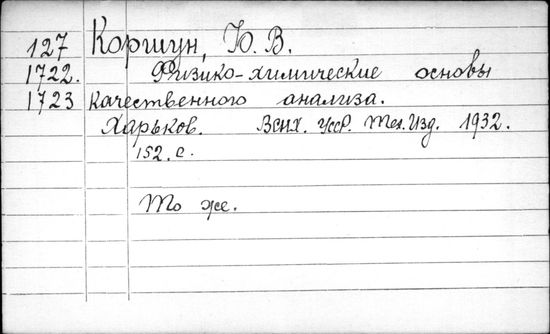 127 Коршун, Ю. В.
1722. Физико-химические основы
1723 качественного анализа.
Харьков. Всих. УССР. Тех. Изд. 1932.
152. с.
То же.